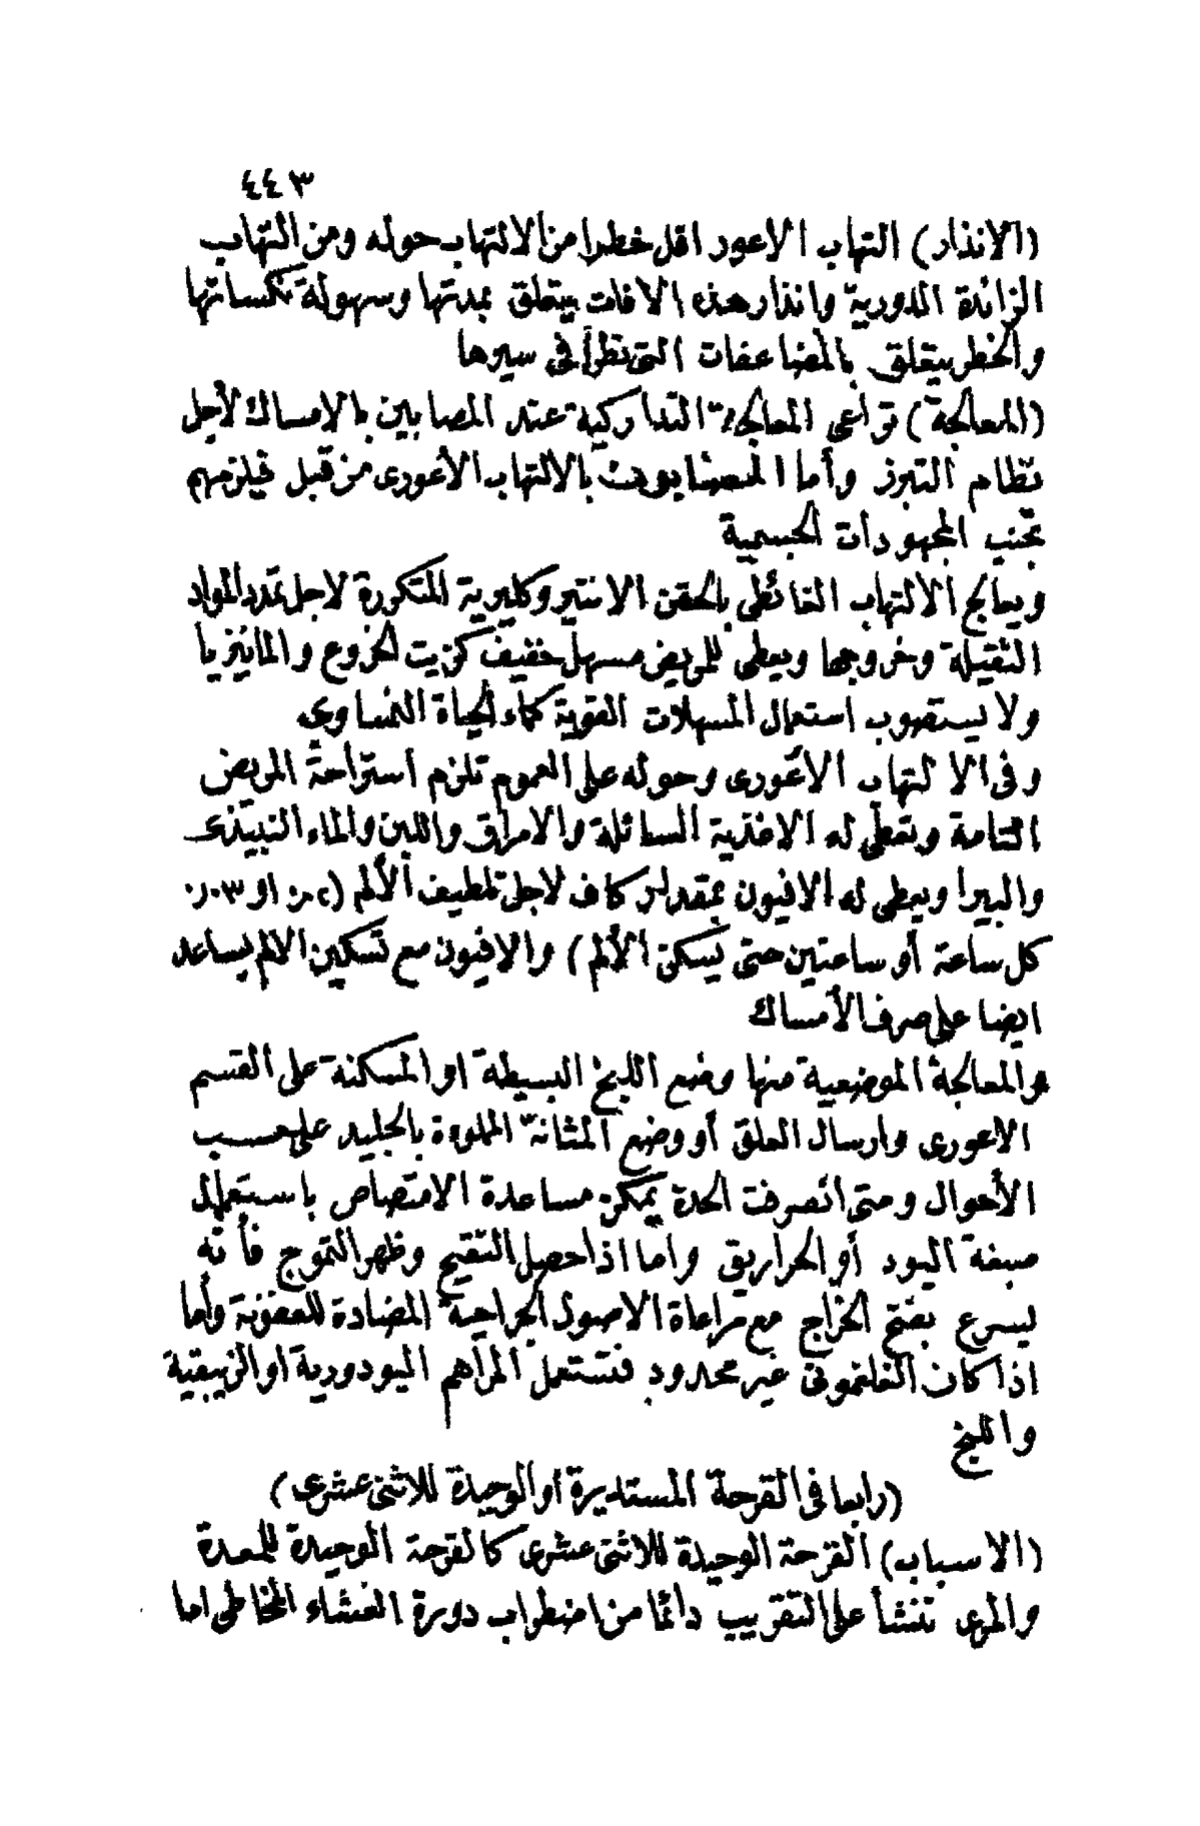 ٤٤٣
(الانذار) التهاب الاعور اقل خطرا من الالتهاب حوله ومن التهاب
الزائدة الدورية وانذار هذه الافات يتعلق بمدتها وسهولة نكساتها
والخطر يتعلق بالمضاعفات التى تطرأ فى سيرها
(المعالجة) تراعى المعالجة التداركية عند المصابين بالامساك لأجل
نظام التبرز وأما المصابون بالالتهاب الأعورى من قبل فيلزمهم
تجنب المجهودات الجسمية
ويعالج الالتهاب الغائطى بالحقن الانتيروكليزية المتكررة لاجل تمدد المواد
الثقيلة وخروجها ويعطى للمريض مسهل خفيف كزيت الخروع والمانيزيا
ولا يستصوب استعمال المسهلات القوية كماء الحياة النمساوى
وفى الالتهاب الأعورى وحوله على العموم تلزم استراحة المريض
التامة وتعطى له الاغذية السائلة والامراق واللبن والماء النبيذى
والبيرا ويعطى له الافيون بمقدار كاف لاجل تلطيف الألم (٠٫٠٢ او ٠٫٠٣
كل ساعة أو ساعتين حتى يسكن الألم) والافيون مع تسكين الالم يساعد
ايضا على صرف الأمساك
والمعالجة الموضعية منها وضع اللبخ البسيطة او المسكنة على القسم
الاعورى وارسال العلق أو وضع المثانة المملوءة بالجليد على حسب
الأحوال ومتى انصرفت الحدة يمكن مساعدة الامتصاص باستعمال
صبغة اليود أو الحراريق واما اذا حصل التقيح وظهر التموج فأنه
يسرع بفتح الخراج مع مراعاة الاصول الجراحية المضادة للعفونة وأما
اذا كان الفلغمونى غير محدود فتستعمل المراهم اليودورية او الزيبقية
واللبخ
(رابعا فى القرحة المستديرة أو الوحيدة للاثنى عشرى)
(الاسباب) القرحة الوحيدة للاثنى عشرى كالقرحة الوحيدة للمعدة
والمرى تنشأ على التقريب دائما من اضطراب دورة الغشاء المخاطى اما